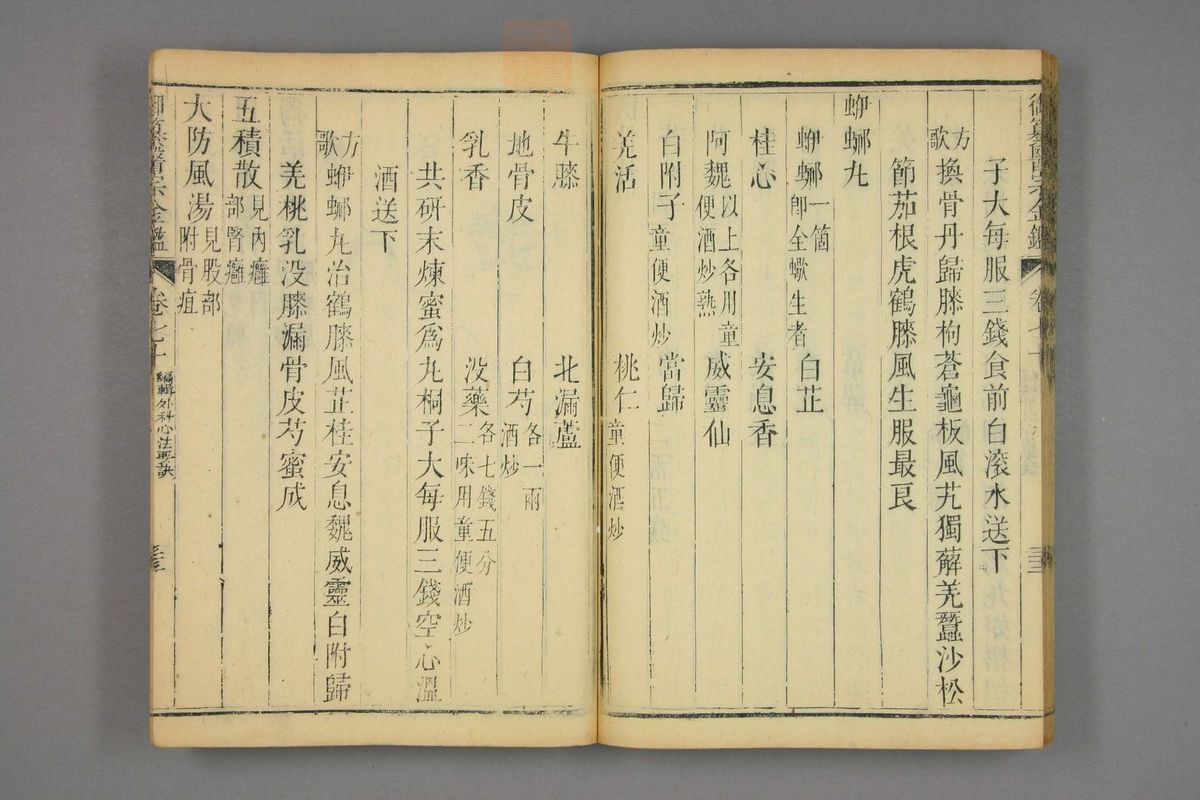 御纂醫宗金鑑 卷七十
子大每服三錢食前白滾水送下
方歌
換骨丹歸膝枸蒼龜板風艽獨萆羌蠶沙松
節茄根虎鶴膝風生服最良
蝍蜋丸
蝍蜋一箇即全蠍生者 白芷
桂心 安息香
阿魏以上各用童便酒炒熟 威靈仙
白附子童便酒炒 當歸
羌活 桃仁童便酒炒
牛膝 北漏蘆
地骨皮 白芍各一兩酒炒
乳香 没藥各七錢五分二味用童便酒炒
共研末煉蜜爲丸桐子大每服三錢空心溫
酒送下
方歌
蝍蜋丸治鶴膝風芷桂安息魏威靈白附歸
羌桃乳没膝漏骨皮芍蜜成
五積散見內癰部腎癰
大防風湯見股部附骨疽
御纂醫宗金鑑 卷七十 編輯外科心法要訣 三三